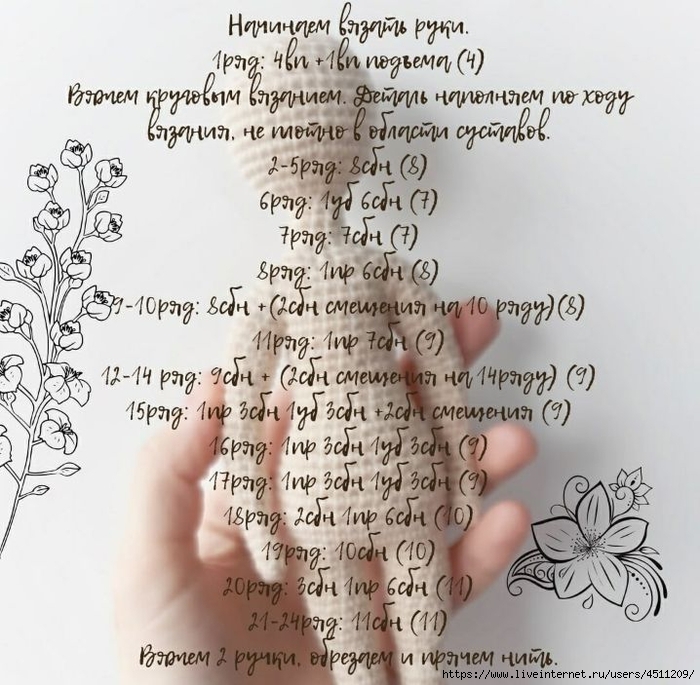 Начинаем вязать руки.
1ряд: 4вп +1вп подъема (4)
Вяжем круговым вязанием. Деталь наполняем по ходу
вязания, не плотно в области суставов.
2-5ряд: 8сбн (8)
6ряд: 1уб 6сбн (7)
7ряд: 7сбн (7)
8ряд: 1пр 6сбн (8)
9-10ряд: 8сбн +(2сбн смещения на 10 ряду)(8)
11ряд: 1пр 7сбн (9)
12-14 ряд: 9сбн + (2сбн смещения на 14ряду) (9)
15ряд: 1пр 3сбн 1уб 3сбн +2сбн смещения (9)
16ряд: 1пр 3сбн 1уб 3сбн (9)
17ряд: 1пр 3сбн 1уб 3сбн (9)
18ряд: 2сбн 1пр 6сбн (10)
19ряд: 10сбн (10)
20ряд: 3сбн 1пр 6сбн (11)
21-24ряд: 11сбн (11)
Вяжем 2 ручки, обрезаем и прячем нить.
https://www.liveinternet.ru/users/4511209/